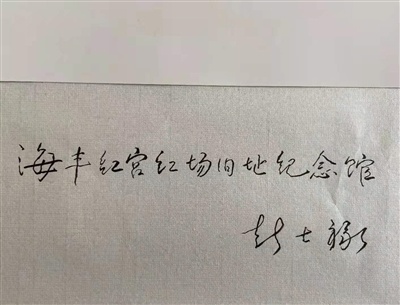 海丰红宫红场旧址纪念馆
彭士禄